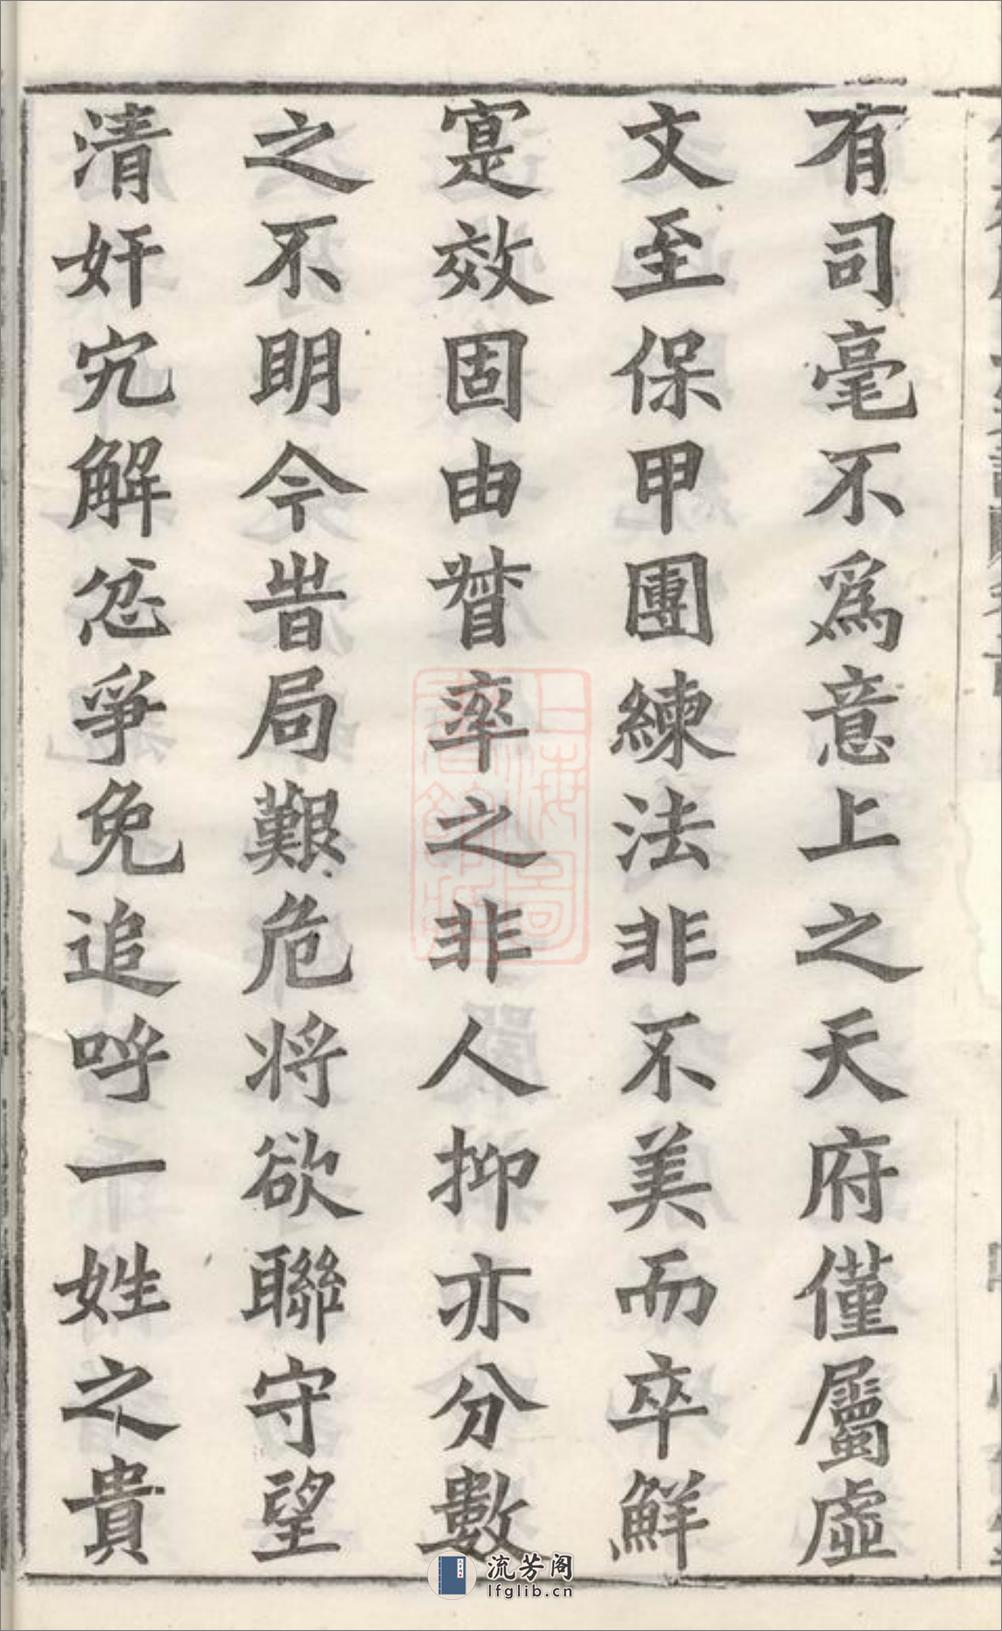 有司毫不爲意上之天府僅屬虛
文至保甲團練法非不美而卒鮮
寔效固由督率之非人抑亦分數
之不明今昔局艱危将欲聯守望
清奸宄解忿爭免追呼一姓之貴
上海圖書館藏
流芳阁
lfglib.cn